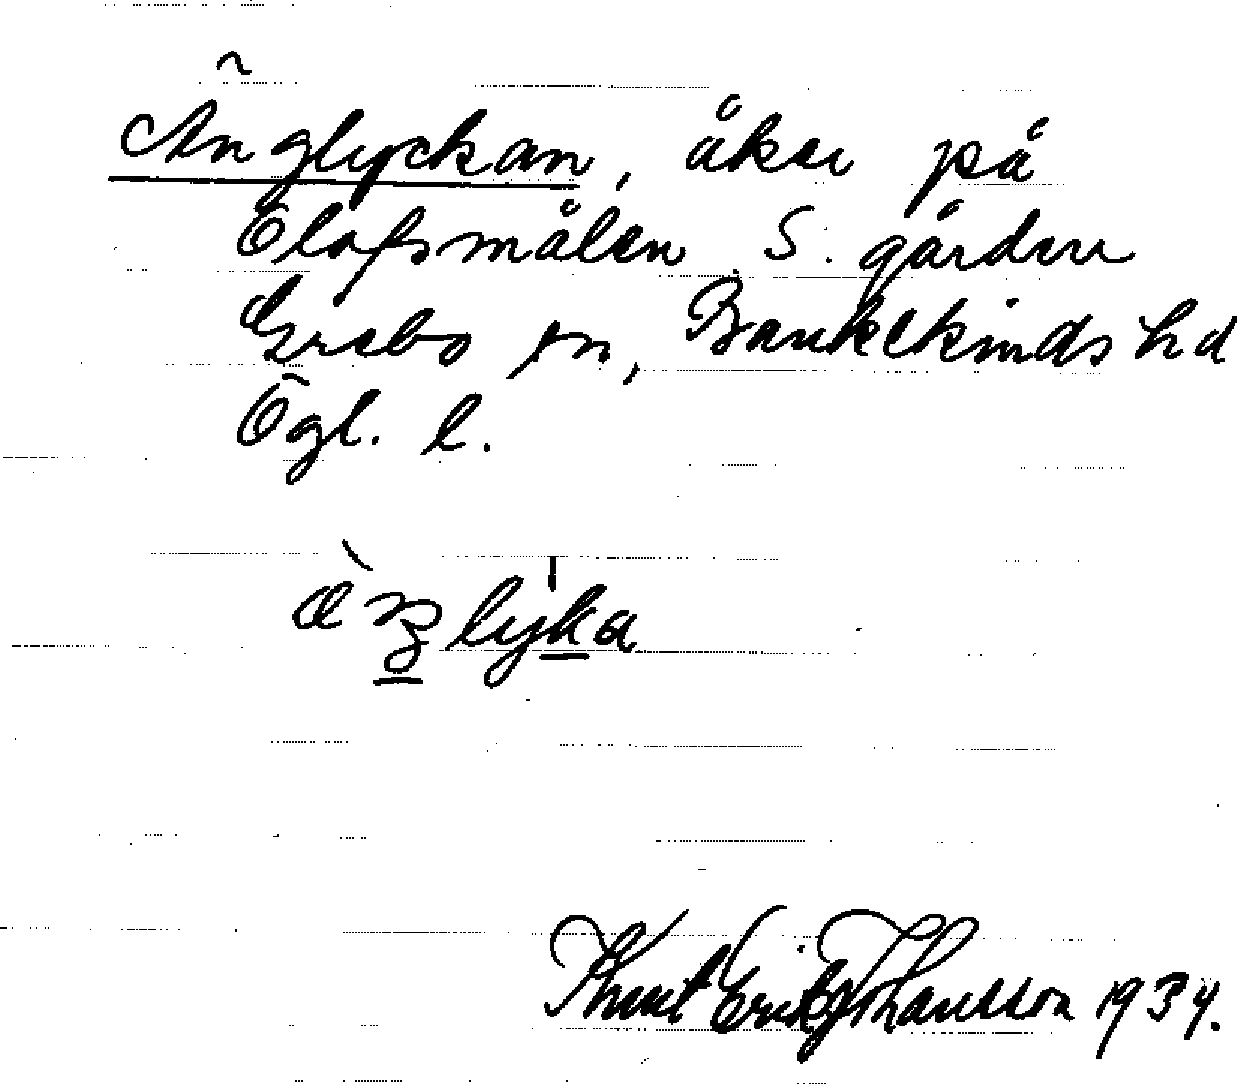 Änglyckan, åker på
Olofsmålen S. gården
Grebo sn, Bankekinds hd
Ögl. l.
Knut Erik Johansson 1934.